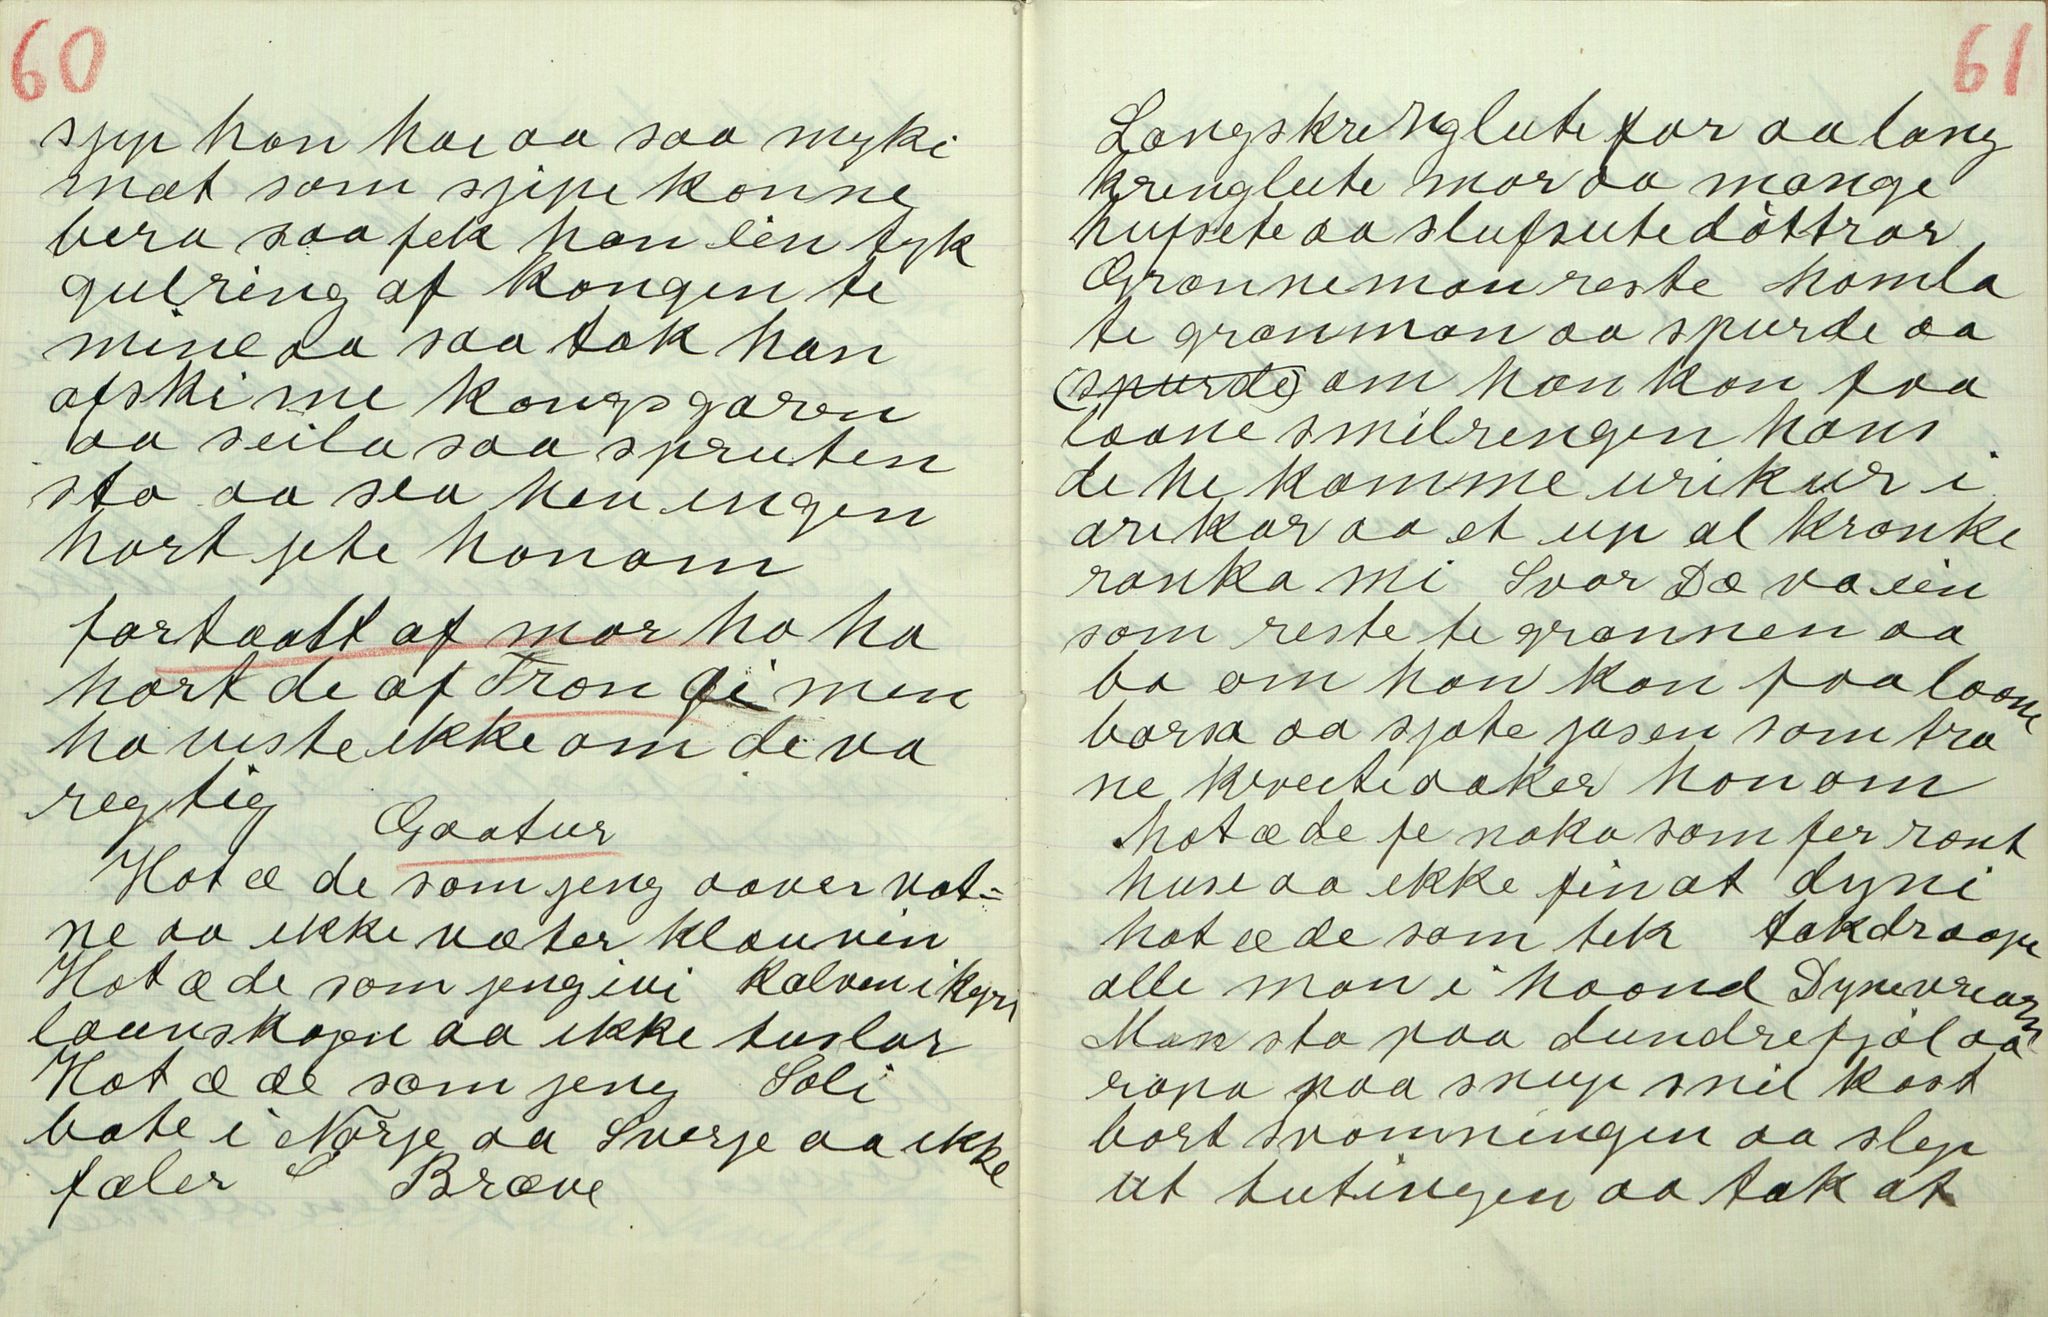 60
sjip han hae aa saa myki
mat som sjipe konne
bera saa fek han ein tyk
gulring af kongen te
mine aa saa tok han
afski me kongsgaren
aa seila saa spruten
sto aa sea hen ingen
hort jete honom
fortaalt af mor ho ha
hort de af Tron Gi men
ho viste ikke om de va
regtig
Gaatur
Hot æ de som jeng aaver vat=
ne aa ikke væter klauven
Hot æ de som jeng ivi Kalven i kyri
launskogen aa ikke tuslar
Hot æ de som jeng Soli
bate i Norje aa Sverje aa ikke
fæler Bræve
61
Langskrenglute far aa lang
krenglute mor aa mange
hufsete aa slufsute döttrar
Grannemon reste homla
te granmon aa spurde aa
(spurde) om han kon faa
laane smilrengen hans
de he komme urikur i
arikar aa et up al kronke
ronka mi Svar Dæ va ein
som reste te grannen aa
ba om han kon faa laane
børsa aa sjøte jasen som tra
ne kveiteaaker honom
hot æ de fe noko som fer ront
huse aa ikke finat dyni
hot æ de som tek takdraape
alle man i haand Dynevrearn
Man sto paa dundrefjöl aa
ropa paa snup snil kast
bort svomningen aa slep
ut tutingen aa tak at